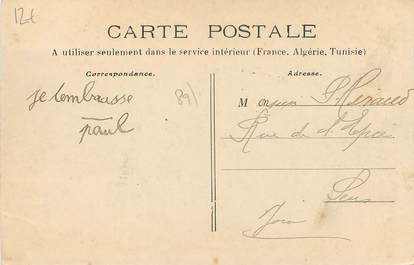 12t
CARTE POSTALE
A utiliser seulement dans le service intérieur (France, Algérie, Tunisie)
Correspondance.
Adresse.
je tembrasse
paul
89)
Monsieur P
Rue de l'Epée
Sens